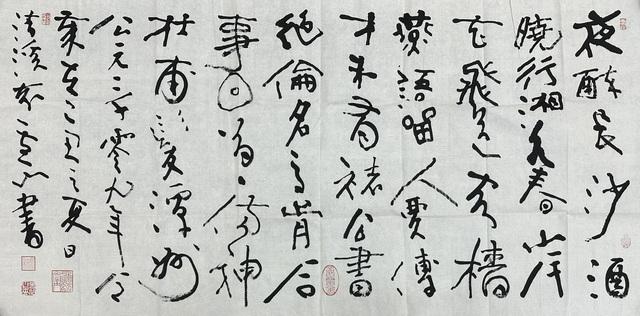 夜醉長沙酒
曉行湘水春岸
花飛送客檣
燕語留人賈傅
才未有褚公書
絕倫名高前后
事回首一傷神
杜甫發潭州
公元二千零九年
在己丑之夏日
清溪書